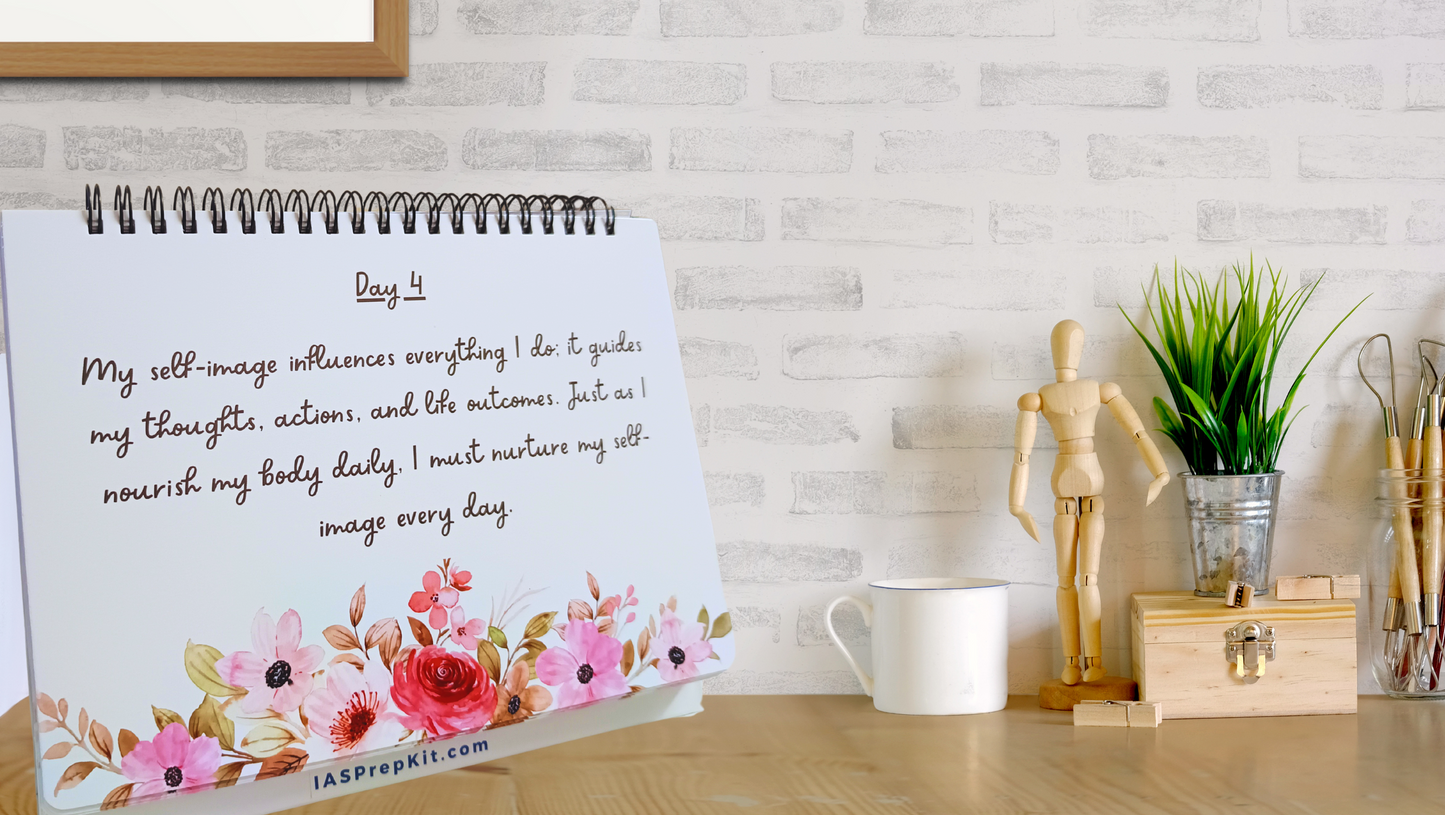 Day 4
My self-image influences everything I do; it guides
my thoughts, actions, and life outcomes. Just as I
nourish my body daily, I must nurture my self-
image every day.
IASPrepKit.com